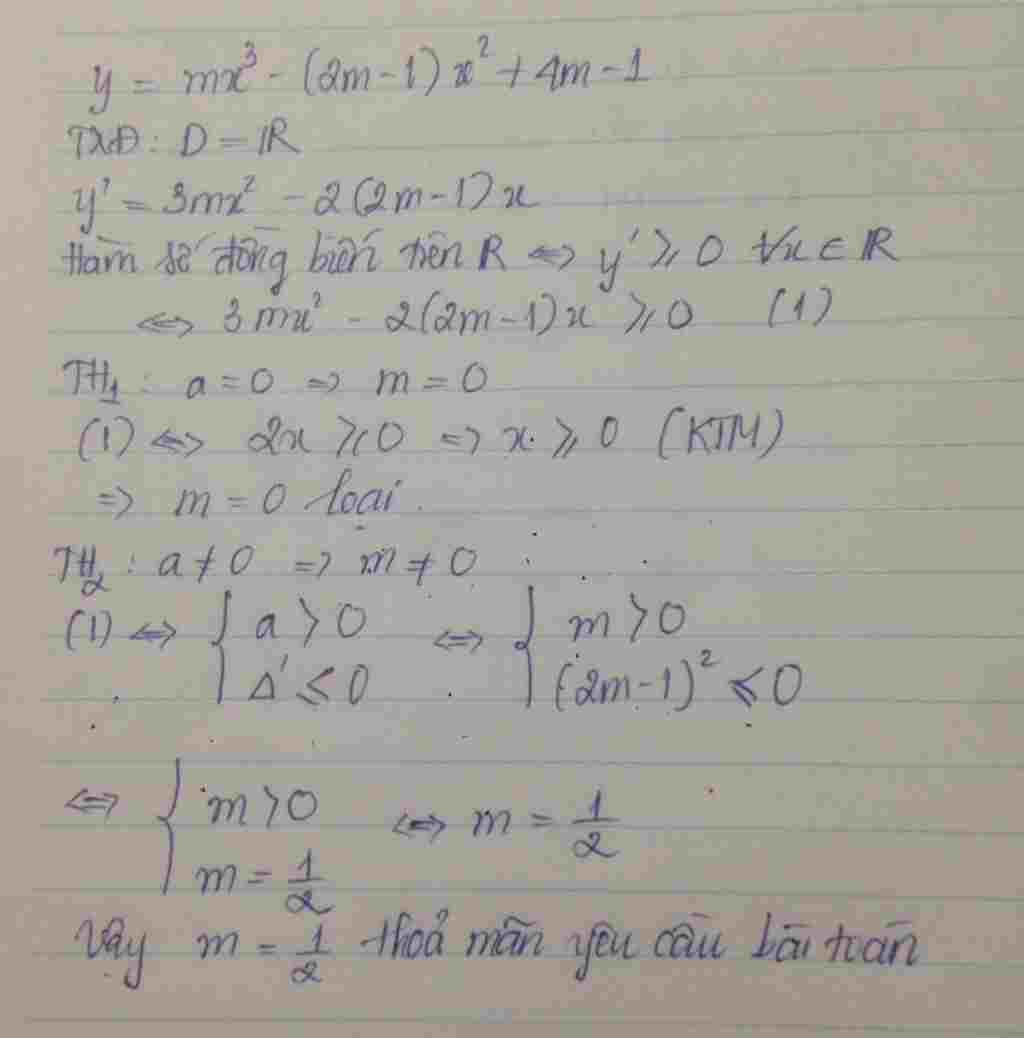 y = mx³ - (2m-1)x² + 4m - 1
TXĐ: D = ℝ
y' = 3mx² - 2(2m-1)x
Hàm số đồng biến trên R ⇔ y' ⩾ 0 ∀x ∈ ℝ
⇔ 3mx² - 2(2m-1)x ⩾ 0 (1)
TH₁: a = 0 ⇒ m = 0
(1) ⇔ 2x ⩾ 0 ⇒ x ⩾ 0 (KTM)
⇒ m = 0 loại.
TH₂: a ≠ 0 ⇒ m ≠ 0
(1) ⇔ { a > 0 ⇔ { m > 0
Δ' ⩽ 0 (2m-1)² ⩽ 0
⇔ { m > 0 ⇔ m = 1/2
m = 1/2
Vậy m = 1/2 thoả mãn yêu cầu bài toán